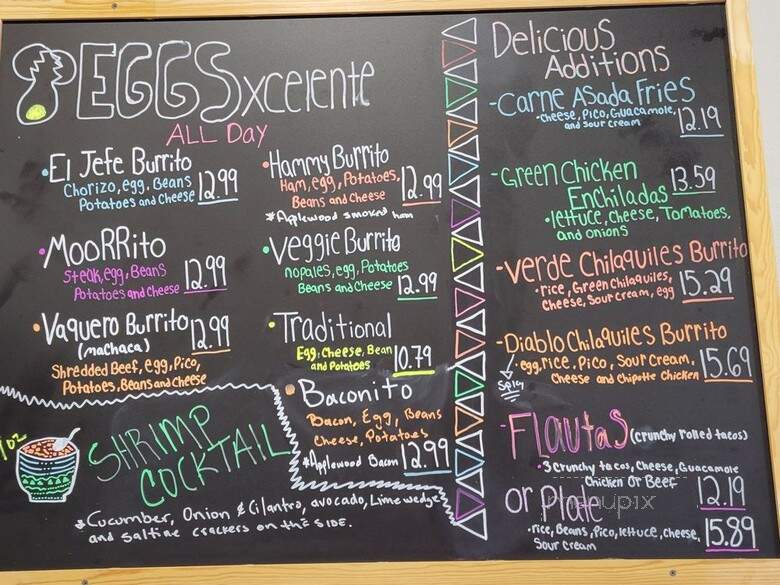 EGGSxcelente
ALL Day
• El Jefe Burrito
Chorizo, egg, Beans
Potatoes and Cheese 12.99
• Hammy Burrito
Ham, egg, Potatoes,
Beans and Cheese 12.99
*Applewood smoked ham
• MooRRito
Steak, egg, Beans
Potatoes and Cheese 12.99
• Veggie Burrito
nopales, egg, Potatoes
Beans and Cheese 12.99
• Vaquero Burrito 12.99
(machaca)
Shredded Beef, egg, Pico,
Potatoes, Beans and Cheese
• Traditional
Egg, Cheese, Bean
and Potatoes 10.79
• Baconito
Bacon, Egg, Beans
Cheese, Potatoes
*Applewood Bacon 12.99
oz
SHRIMP
COCKTAIL
*Cucumber, Onion & Cilantro, avocado, Lime wedge
and saltine crackers on the SIDE.
Delicious
Additions
-Carne Asada Fries
•Cheese, Pico, Guacamole,
and sour cream 12.19
-Green Chicken
Enchiladas 13.59
•lettuce, Cheese, Tomatoes,
and onions
-Verde Chilaquiles Burrito
•rice, Green Chilaquiles,
Cheese, Sour cream, egg 15.29
-Diablo Chilaquiles Burrito
•egg, rice, Pico, Sour Cream,
Cheese and Chipotle Chicken 15.69
Spicy
-Flautas (crunchy rolled tacos)
•3 Crunchy tacos, Cheese, Guacamole
Chicken Or Beef 12.19
or Plate
•rice, Beans, Pico, lettuce, cheese,
Sour cream 15.89
menupix